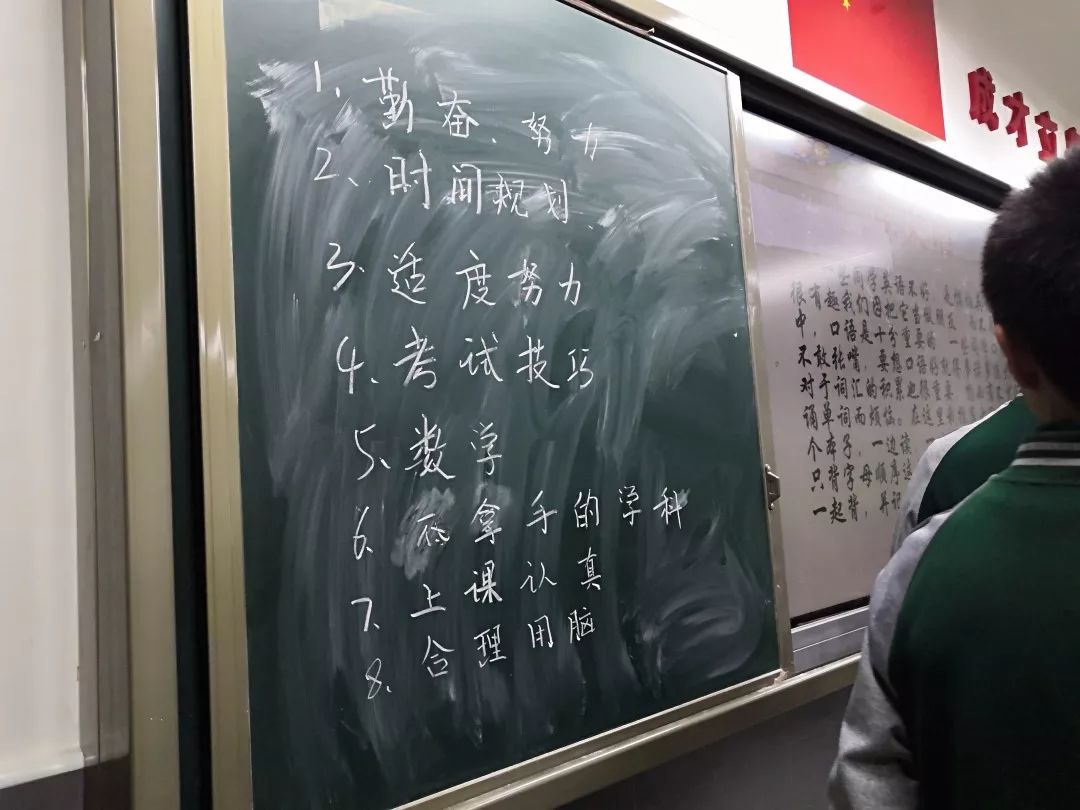 1、勤奋、努力
2、时间规划
3、适度努力
4、考试技巧
5、数学
6、不拿手的学科
7、上课认真
8、合理用脑
成才立
一些同学英语不好
很有趣我们因把它当做
中，口语是十分重要的
不敢张嘴，要想口语好就得
对于词汇的积累也很重要
诵单词而烦恼。在这里
个本子，一边读
只背字母顺序这
一起背，并记